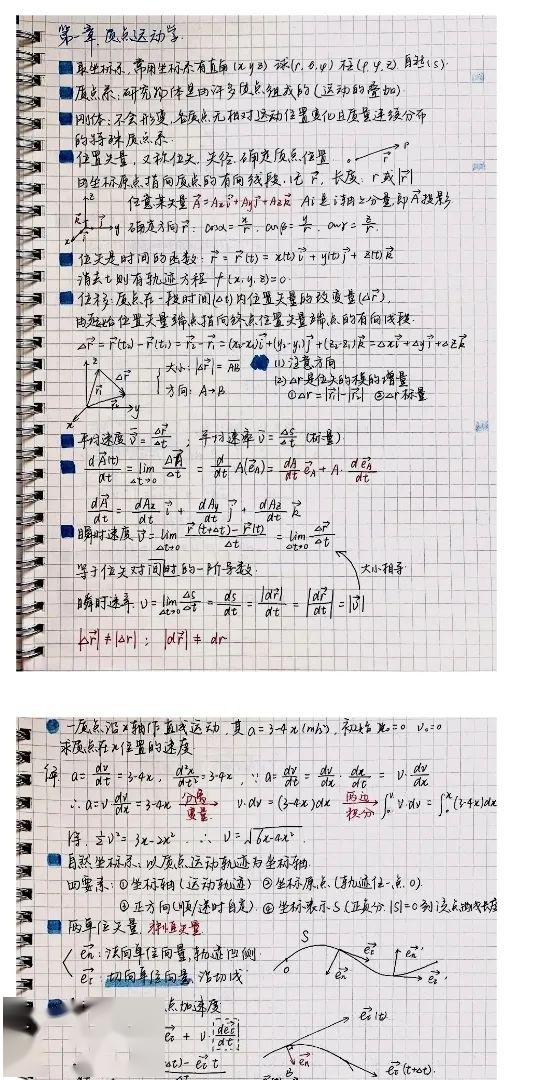 第一章 质点运动学
取坐标系,常用坐标系有直角(x y z) 球(r,θ,φ) 柱(ρ,φ,z) 自然(s)
质点系:研究物体是由许多质点组成的(运动的叠加)
刚体:不会形变,各质点无相对运动位置变化且质量连续分布
的特殊质点系
位置矢量,又称位矢,矢径,确定质点位置
由坐标原点指向质点的有向线段,记 r⃗,长度:r或|r⃗|
任意某矢量 A⃗=Axi⃗+Ayj⃗+Azk⃗ Ai是i轴上分量,即A⃗投影
确定方向r⃗: cosα=x/r, cosβ=y/r, cosγ=z/r
位矢是时间的函数: r⃗=r⃗(t)=x(t)i⃗+y(t)j⃗+z(t)k⃗
消去t则有轨迹方程 f(x,y,z)=0
位移:质点在一段时间(Δt)内位置矢量的改变量(Δr⃗),
由起始位置矢量端点指向终点位置矢量端点的有向线段.
Δr⃗=r⃗(t₂)-r⃗(t₁)=r⃗₂-r⃗₁=(x₂-x₁)i⃗+(y₂-y₁)j⃗+(z₂-z₁)k⃗=Δxi⃗+Δyj⃗+Δzk⃗
大小:|Δr⃗|=AB (1)注意方向
方向:A→B (2)Δr是位矢的模的增量
①Δr=|r⃗₂|-|r⃗₁| ②Δr标量
平均速度v⃗=Δr⃗/Δt, 平均速率v̄=Δs/Δt (标量)
dA⃗(t)/dt=lim Δt→0 ΔA⃗/Δt=d/dt A(e⃗A)=dA/dt e⃗A+A·de⃗A/dt
dA⃗/dt=dAx/dt i⃗+dAy/dt j⃗+dAz/dt k⃗
瞬时速度v⃗=lim Δt→0 r⃗(t+Δt)-r⃗(t)/Δt=lim Δt→0 Δr⃗/Δt
等于位矢对时间的一阶导数. 大小相等
瞬时速率 v=lim Δt→0 Δs/Δt=ds/dt=|dr⃗|/dt=|dr⃗/dt|=|v⃗|
|Δr⃗|≠|Δr|; |dr⃗|≠dr
一质点沿x轴作直线运动,其a=3-4x(m/s²),初始 x₀=0 v₀=0
求质点在x位置的速度
解 a=dv/dt=3-4x, d²x/dt²=3-4x, ∵a=dv/dt=dv/dx·dx/dt=v·dv/dx
∴a=v·dv/dx=3-4x 分离变量 v·dv=(3-4x)dx 两边积分 ∫₀ᵛ v·dv=∫₀ˣ(3-4x)dx
得 ½v²=3x-2x² ∴v=√6x-4x²
自然坐标系:以质点运动轨迹为坐标轴
四要素:①坐标轴(运动轨迹) ②坐标原点(轨迹任一点O)
③正方向(顺/逆时自定) ④坐标表示S(正负分 |S|=O到该点曲线长度
两单位矢量
e⃗n:法向单位向量,轨迹凹侧
e⃗t:切向单位向量,沿切线
S O e⃗t e⃗n e⃗n' e⃗t'
点加速度
e⃗t+v·de⃗t/dt
e⃗t(t)
e⃗n
B
e⃗t(t+Δt)